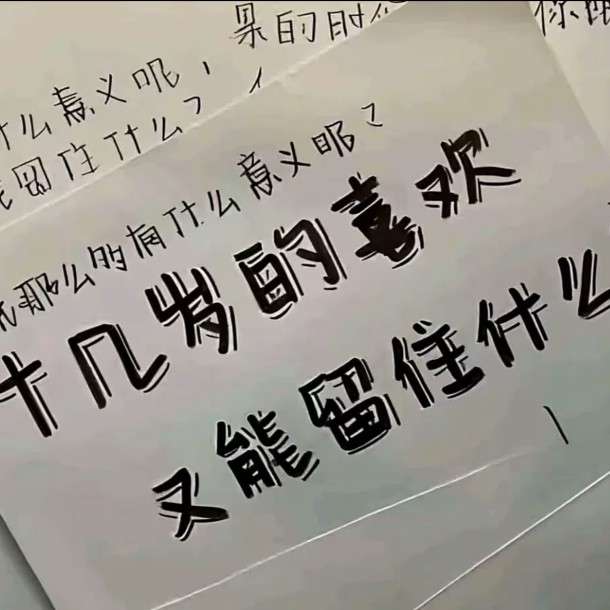 果的时
你
什么意义呢，
能留住什么？
那么的有什么意义呢？
十几岁的喜欢
又能留住什么